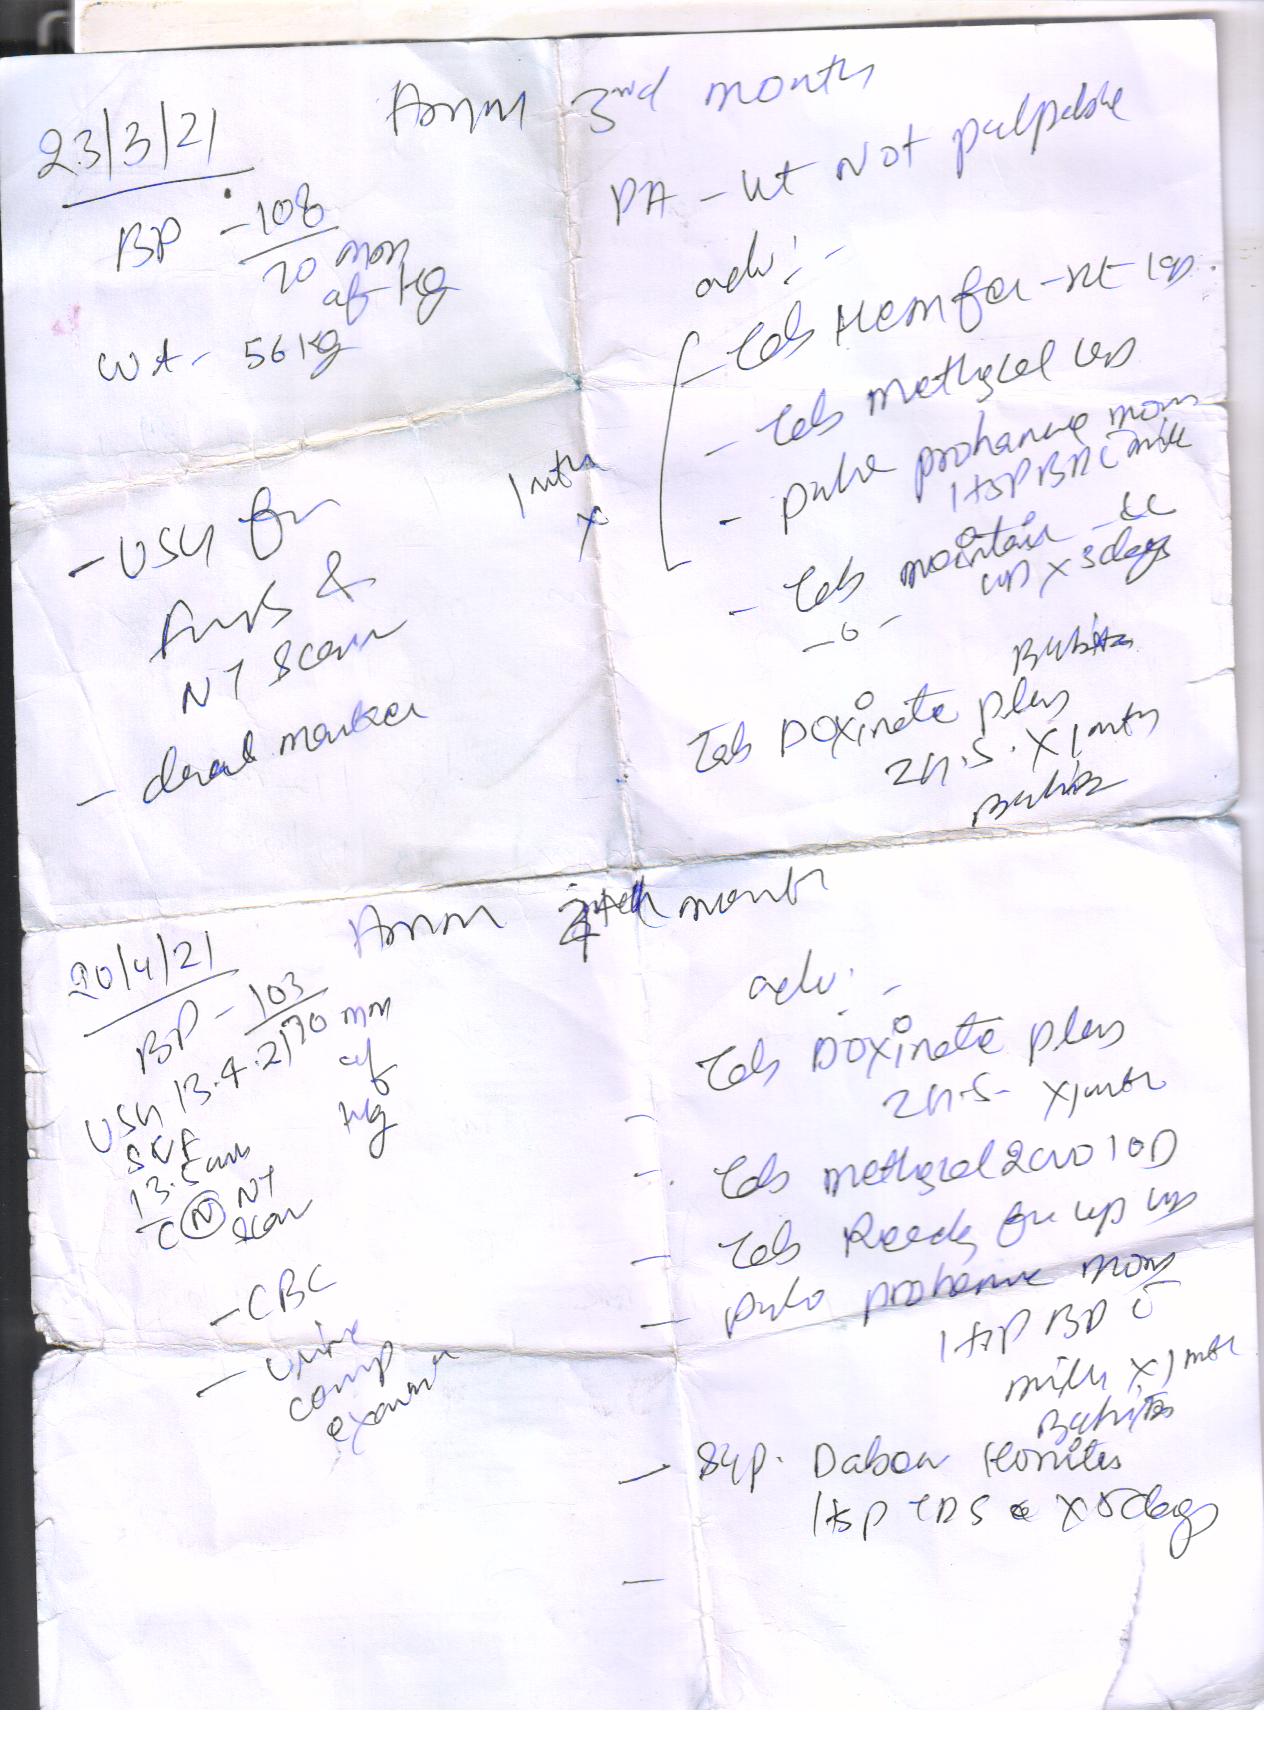 23/3/21
Amm 3rd month
BP - 108
70 mm
of Hg
Wt - 56 kg
PA - ut Not palpable
adv: -
- Tab Hemfer-XT 1OD.
- Tab methycal 1OD
- pulv prohance mom
1 tsp BD c milk
1 mth
x
- Tab maintain
x 3 days
- 0 -
- USG for
&
NT Scan
- dual marker
Tab Doxinate plus
2 H.S. x 1 mth
20/4/21
Amm 4th month
BP - 103
70 mm
of
Hg
USG 13.4.21
SLF
13.5 wks
c N NT
scan
- CBC
- Urine
comp
exam
adv: -
Tab Doxinate plus
2 H.S. x 1 mth
- Tab methycal 2000 1 OD
- Tab
- pulv prohance mom
1 tsp BD c
milk x 1 mth
- Syp. Dabour Honitus
1 tsp TDS x 5 days
-